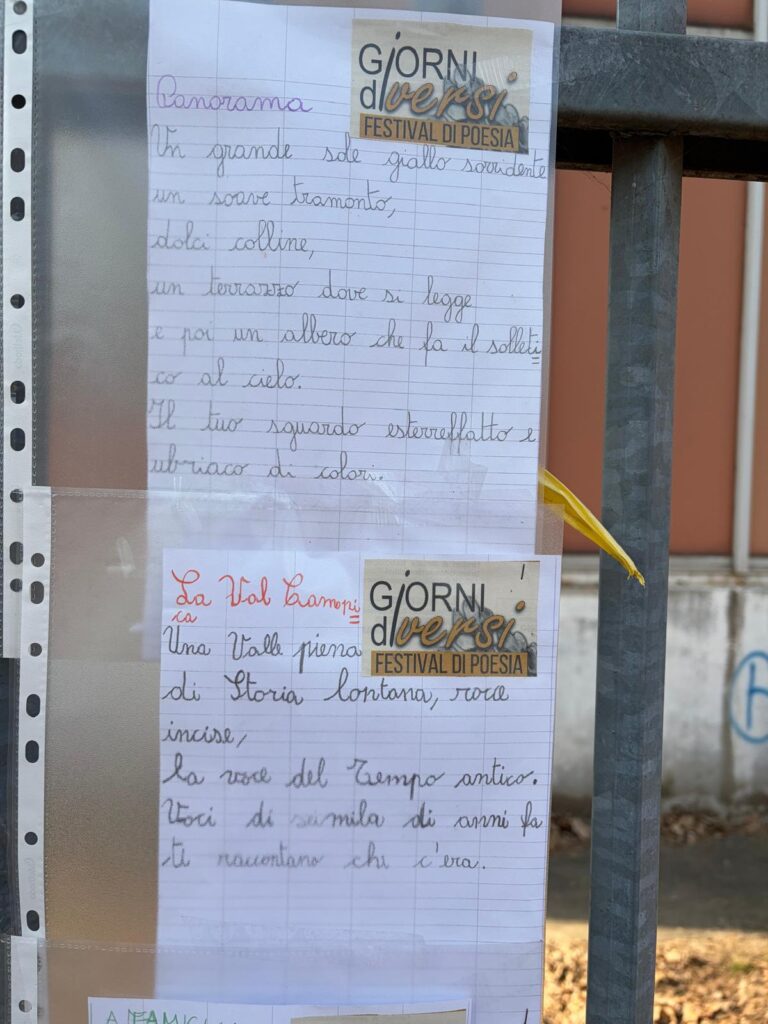 GiORNI
diversi
FESTIVAL DI POESIA
Panorama
Un grande sole giallo sorridente
un soave tramonto,
dolci colline,
un terrazzo dove si legge
e poi un albero che fa il solleti=
co al cielo.
Il tuo sguardo esterreffatto e
ubriaco di colori.
GiORNI
diversi
FESTIVAL DI POESIA
La Val Camoni=
ca
Una Valle piena
di Storia lontana, rocce
incise,
la voce del Tempo antico.
Voci di seimila di anni fa
ti raccontano chi c'era.